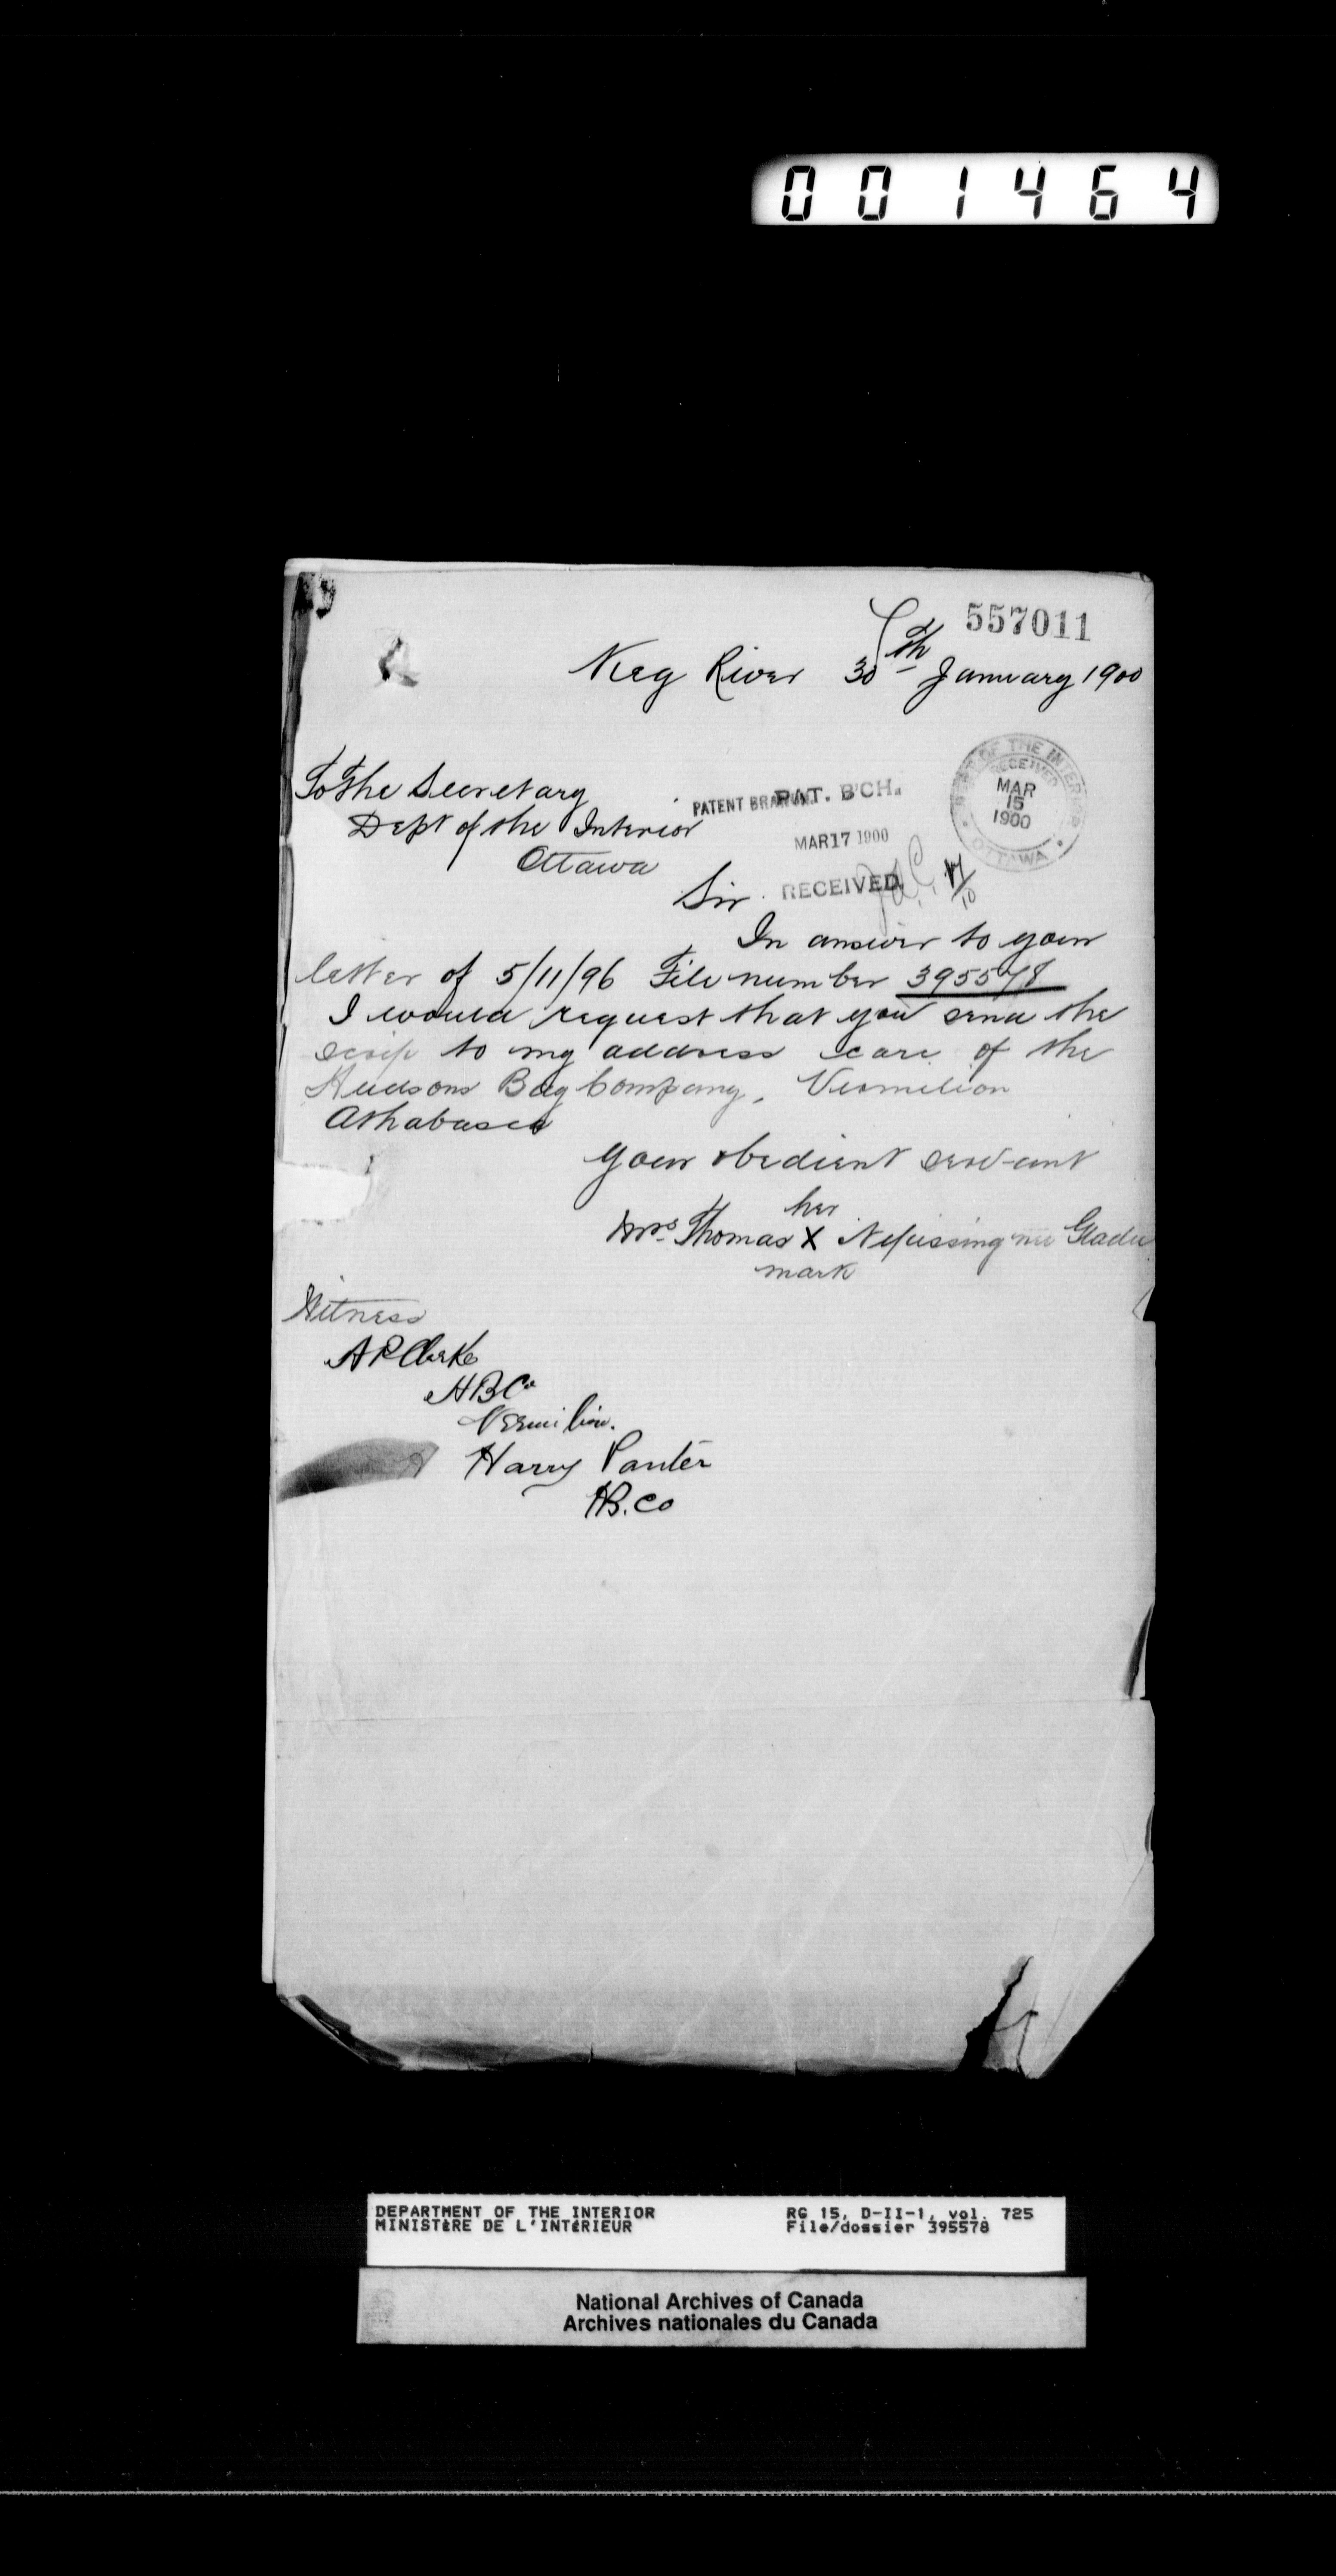 001464
557011
Keg River 30th January 1900
To The Secretary
Dept of the Interior
Ottawa
PATENT BRANCH
PAT. B'CH.
MAR 17 1900
RECEIVED
DEPT OF THE INTERIOR
RECEIVED
MAR
15
1900
OTTAWA
Sir
In answer to your
letter of 5/11/96 File number 395578
I would request that you send the
scrip to my address care of the
Hudsons Bay Company, Vermilion
Athabasca
Your obedient servant
her
Mrs. Thomas X Nepissing nee Gladu
mark
Witness
A R Clarke
HBCo
Vermilion.
Harry Panter
HB.Co
DEPARTMENT OF THE INTERIOR RG 15, D-II-1, vol. 725
MINISTÈRE DE L'INTÉRIEUR File/dossier 395578
National Archives of Canada
Archives nationales du Canada